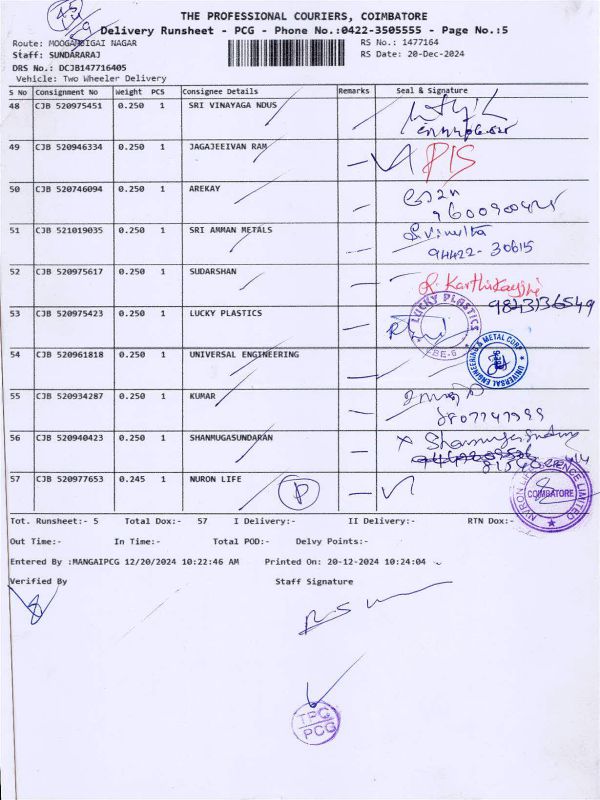 THE PROFESSIONAL COURIERS, COIMBATORE
Delivery Runsheet - PCG - Phone No.:0422-3505555 - Page No.:5
Route: MOOGAMBIGAI NAGAR RS No.: 1477164
Staff: SUNDARARAJ RS Date: 20-Dec-2024
DRS No.: DCJB147716405
Vehicle: Two Wheeler Delivery
S No Consignment No Weight PCS Consignee Details Remarks Seal & Signature
48 CJB 520975451 0.250 1 SRI VINAYAGA NDUS
49 CJB 520946334 0.250 1 JAGAJEEIVAN RAM
50 CJB 520746094 0.250 1 AREKAY
51 CJB 521019035 0.250 1 SRI AMMAN METALS
94422-30615
52 CJB 520975617 0.250 1 SUDARSHAN
9843136549
53 CJB 520975423 0.250 1 LUCKY PLASTICS LUCKY PLASTICS CBE-6
54 CJB 520961818 0.250 1 UNIVERSAL ENGINEERING UNIVERSAL ENGINEERING & METAL CORP
55 CJB 520934287 0.250 1 KUMAR
56 CJB 520940423 0.250 1 SHANMUGASUNDARAN
57 CJB 520977653 0.245 1 NURON LIFE P COIMBATORE
Tot. Runsheet:- 5 Total Dox:- 57 I Delivery:- II Delivery:- RTN Dox:-
Out Time:- In Time:- Total POD:- Delvy Points:-
Entered By :MANGAIPCG 12/20/2024 10:22:46 AM Printed On: 20-12-2024 10:24:04
Verified By Staff Signature
TPC
PCG